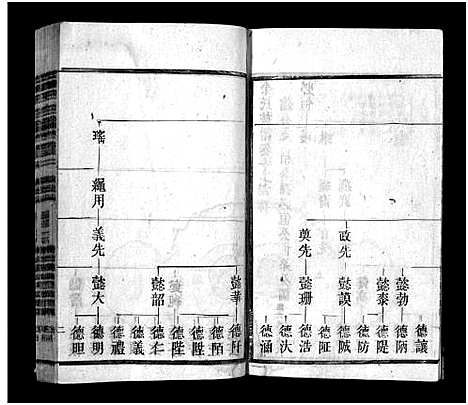 政先
奠先
懿勃
懿泰
懿謨
懿珊
德讓
德陃
德隄
德防
德陚
德阯
德浩
德汏
德涵
瑤
繩用
義先
懿華
懿韶
懿大
德陌
德陞
德仁
德義
德禮
德明
德昍